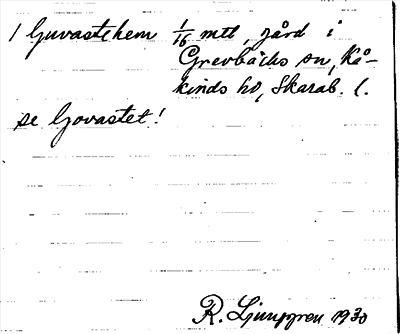 1 Guvastehem 1/16 mtl, gård i
Grevbäcks sn, Kå-
kinds hd, Skarab. l.
se Govastet!
R. Ljunggren 1930